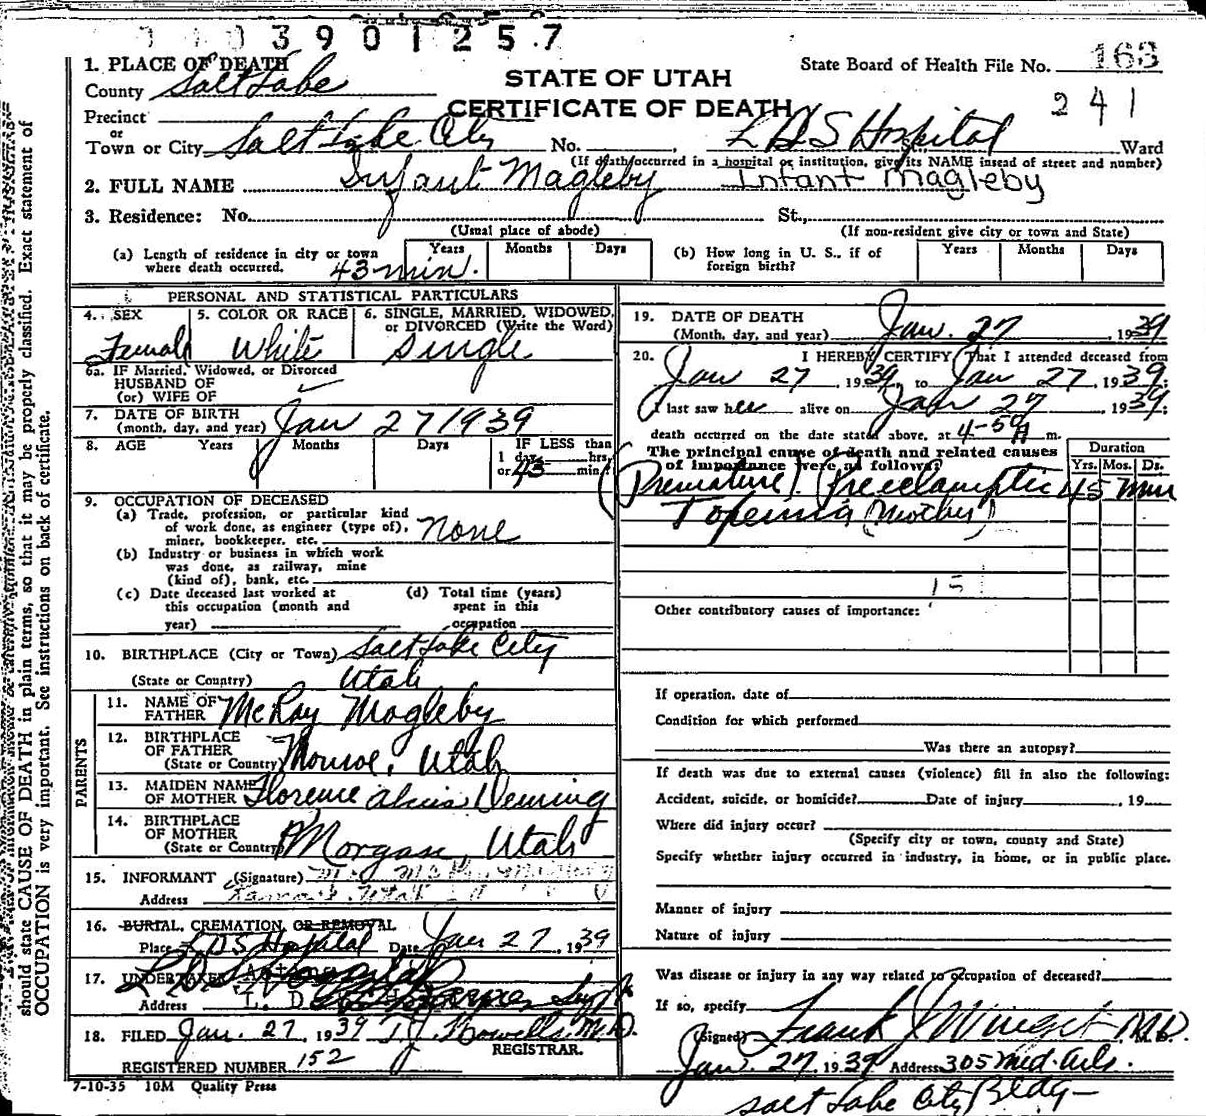 3901257
1. PLACE OF DEATH
County Salt Lake
STATE OF UTAH
CERTIFICATE OF DEATH
State Board of Health File No. 163
241
Precinct
or
Town or City Salt Lake City No. , L D S Hospital St., Ward
(If death occurred in a hospital or institution, give its NAME insead of street and number)
2. FULL NAME Infant Magleby Infant Magleby
3. Residence: No. St.,
(Usual place of abode) (If non-resident give city or town and State)
(a) Length of residence in city or town where death occurred. 43 min. Years Months Days
(b) How long in U. S., if of foreign birth? Years Months Days
PERSONAL AND STATISTICAL PARTICULARS
4. SEX Female
5. COLOR OR RACE White
6. SINGLE, MARRIED, WIDOWED, or DIVORCED (Write the Word) Single
6a. IF Married, Widowed, or Divorced
HUSBAND OF
(or) WIFE OF
7. DATE OF BIRTH
(month, day, and year) Jan 27 1939
8. AGE Years Months Days IF LESS than
1 day hrs.
or 43 min.
9. OCCUPATION OF DECEASED
(a) Trade, profession, or particular kind
of work done, as engineer (type of),
miner, bookkeeper, etc. None
(b) Industry or business in which work
was done, as railway, mine
(kind of), bank, etc.
(c) Date deceased last worked at
this occupation (month and
year)
(d) Total time (years)
spent in this
occupation
10. BIRTHPLACE (City or Town) Salt Lake City
(State or Country) Utah
PARENTS
11. NAME OF
FATHER McKay Magleby
12. BIRTHPLACE
OF FATHER
(State or Country) Monroe, Utah
13. MAIDEN NAME
OF MOTHER Florence Deming
14. BIRTHPLACE
OF MOTHER
(State or Country) Morgan, Utah
15. INFORMANT (Signature)
Address
16. BURIAL, CREMATION OR REMOVAL
Place L D S Hospital Date Jan 27, 1939
17. UNDERTAKER L D S Hospital
Address
18. FILED Jan. 27, 1939 T J Howells M.D.
REGISTRAR.
REGISTERED NUMBER 152
7-10-35 10M Quality Press
19. DATE OF DEATH
(Month, day, and year) Jan. 27, 1939
20. I HEREBY CERTIFY, That I attended deceased from
Jan 27, 1939, to Jan 27, 1939;
I last saw her alive on Jan 27 1939;
death occurred on the date stated above, at 4-50 A m.
The principal cause of death and related causes
of importance were as follows:
Duration
Yrs. Mos. Ds.
(Premature) Preeclamptic 45 min
Toxemia (Mother)
15
Other contributory causes of importance:
If operation, date of
Condition for which performed
Was there an autopsy?
If death was due to external causes (violence) fill in also the following:
Accident, suicide, or homicide? Date of injury , 19
Where did injury occur?
(Specify city or town, county and State)
Specify whether injury occurred in industry, in home, or in public place.
Manner of injury
Nature of injury
Was disease or injury in any way related to occupation of deceased?
If so, specify
(Signed) Frank J Winget M.D.
Jan. 27, 1939 Address 305 Med. Arts.
Salt Lake City Bldg
should state CAUSE OF DEATH in plain terms, so that it may be properly classified. Exact statement of
OCCUPATION is very important. See instructions on back of certificate.